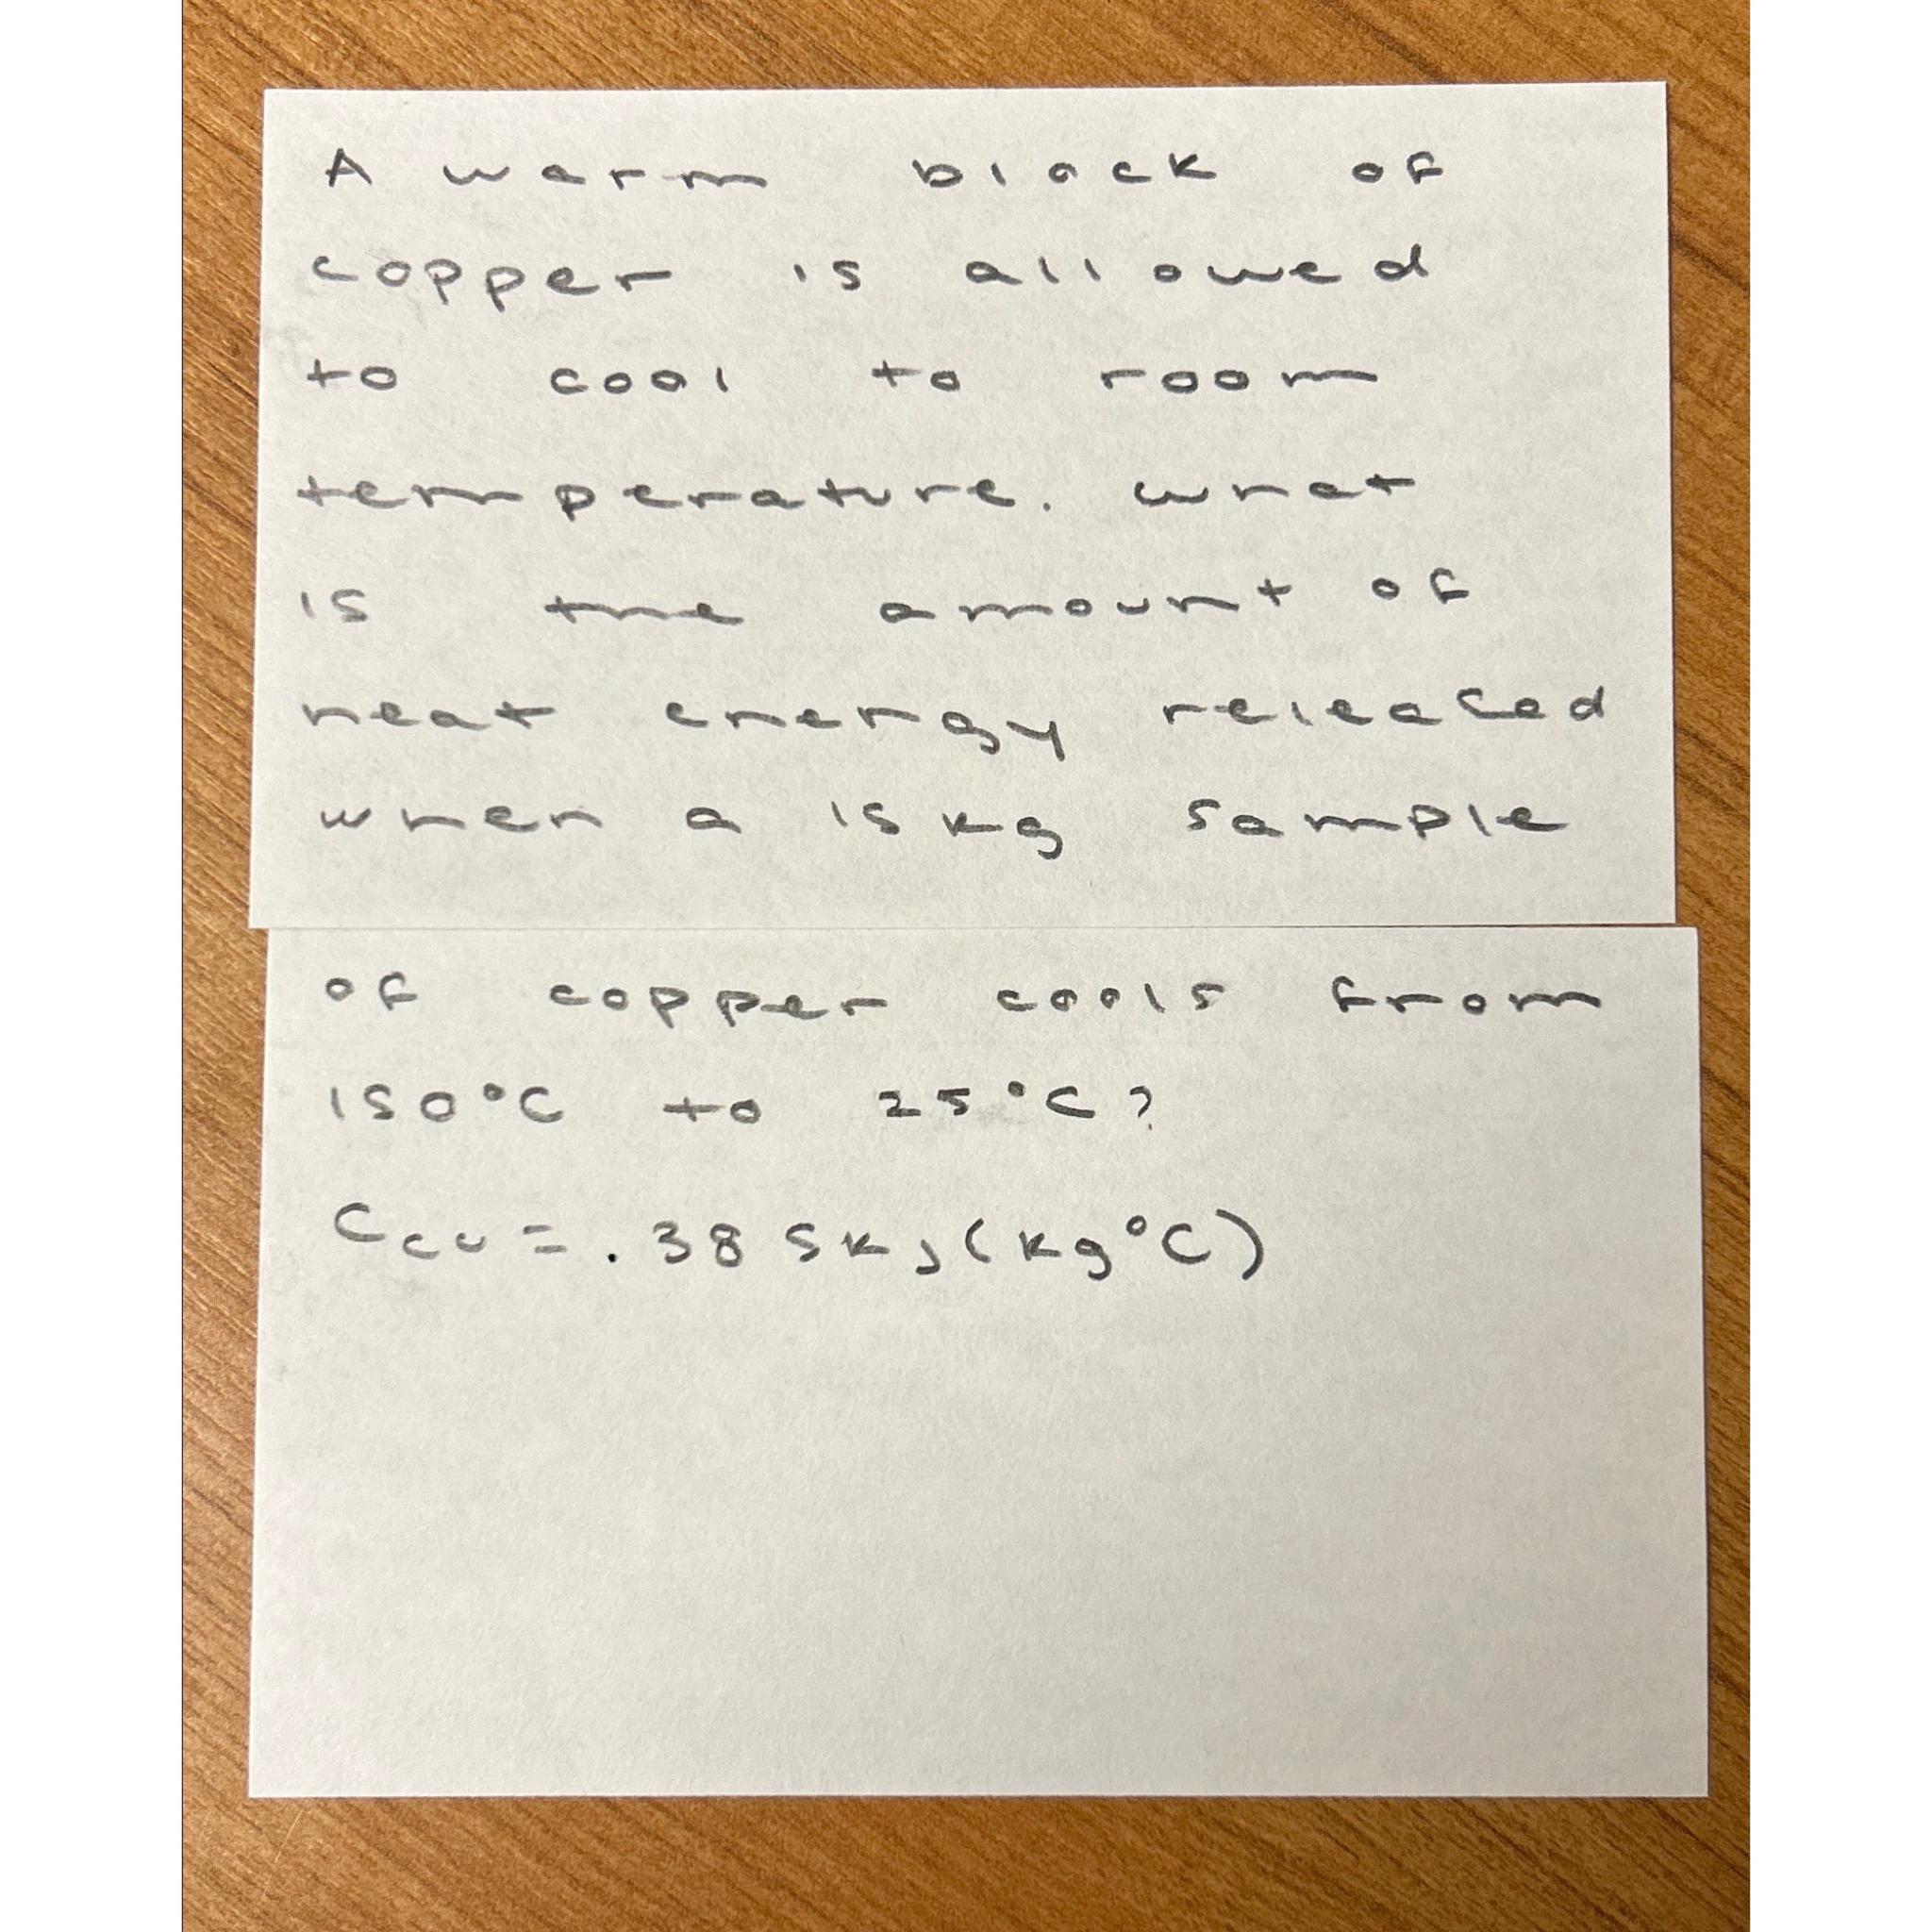 A warm block of
copper is allowed
to cool to room
temperature. what
is the amount of
heat energy released
when a 15kg sample
of copper cools from
150°C to 25°C?
Ccu = .385kJ(kg°C)